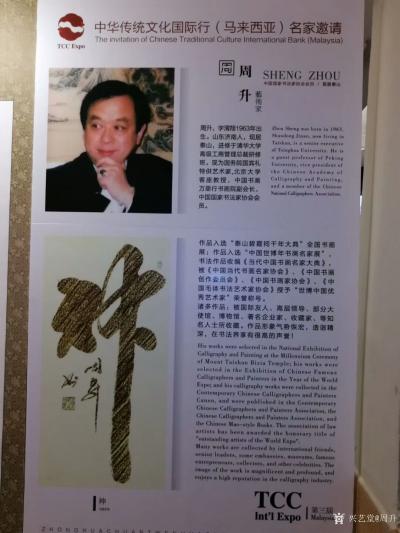 中华传统文化国际行（马来西亚）名家邀请
The invitation of Chinese Traditional Culture International Bank (Malaysia)
TCC Expo
周
周升
藝術家
SHENG ZHOU
周升，字渭翔1963年出
生，山东济南人，现居
泰山，进修于清华大学
高级工商管理总裁研修
班，现为国务院国宾礼
特供艺术家，北京大学
客座教授，中国书画
万里行书画院副会长，
中国国家书法家协会会
员。
Zhou Sheng was born in 1963,
Shandong Jinan, now living in
Taishan, is a senior executive
of Tsinghua University. He is
a guest professor of Peking
University, vice president of
the Chinese Academy of
Calligraphy and Painting,
and a member of the Chinese
National Calligraphers Association.
作品入选"泰山碧霞祠千年大典"全国书画
展；作品入选"中国世博年书画名家展"，
书法作品收编《当代中国书画名家大典》，
被《中国当代书画名家协会》、《中国书画
创作委员会》、《中国书画家协会》、《中
国毛体书法艺术家协会》授予"世博中国优
秀艺术家"荣誉称号。
诸多作品，被国际友人、高层领导、部分大
使馆、博物馆、著名企业家、收藏家、等知
名人士所收藏，作品形象气势恢宏，造诣精
深，在书法界享有很高的声誉！
His works were selected in the National Exhibition of
Calligraphy and Painting at the Millennium Ceremony
of Mount Taishan Bixia Temple; his works were
selected in the Exhibition of Chinese Famous
Calligraphers and Painters in the Year of the World
Expo; and his calligraphy works were collected in the
Contemporary Chinese Calligraphers and Painters
Canon, and were published in the Contemporary
Chinese Calligraphers and Painters Association, the
Chinese Calligraphers and Painters Association, and
the Chinese Mao-style Books. The association of law
artists has been awarded the honorary title of
"outstanding artists of the World Expo".
Many works are collected by international friends,
senior leaders, some embassies, museums, famous
entrepreneurs, collectors, and other celebrities. The
image of the work is magnificent and profound, and
enjoys a high reputation in the calligraphy industry.
神
TCC
Int'l Expo
第三届
Malaysia
兴艺堂@周升